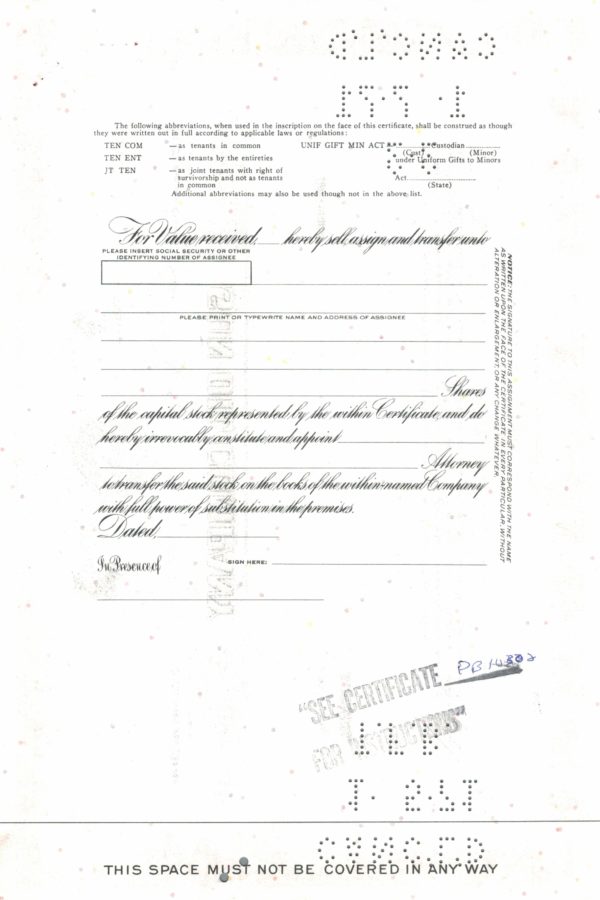 The following abbreviations, when used in the inscription on the face of this certificate, shall be construed as though
they were written out in full according to applicable laws or regulations:
TEN COM —as tenants in common
TEN ENT —as tenants by the entireties
JT TEN —as joint tenants with right of
survivorship and not as tenants
in common
UNIF GIFT MIN ACT Custodian
(Cust) (Minor)
under Uniform Gifts to Minors
Act
(State)
Additional abbreviations may also be used though not in the above list.
For Value received, hereby sell, assign and transfer unto
PLEASE INSERT SOCIAL SECURITY OR OTHER
IDENTIFYING NUMBER OF ASSIGNEE
PLEASE PRINT OR TYPEWRITE NAME AND ADDRESS OF ASSIGNEE
Shares
of the capital stock represented by the within Certificate, and do
hereby irrevocably constitute and appoint
Attorney
to transfer the said stock on the books of the within-named Company
with full power of substitution in the premises.
Dated,
In Presence of
SIGN HERE:
NOTICE: THE SIGNATURE TO THIS ASSIGNMENT MUST CORRESPOND WITH THE NAME
AS WRITTEN UPON THE FACE OF THE CERTIFICATE IN EVERY PARTICULAR, WITHOUT
ALTERATION OR ENLARGEMENT, OR ANY CHANGE WHATEVER.
"SEE CERTIFICATE
FOR INSTRUCTIONS"
THIS SPACE MUST NOT BE COVERED IN ANY WAY